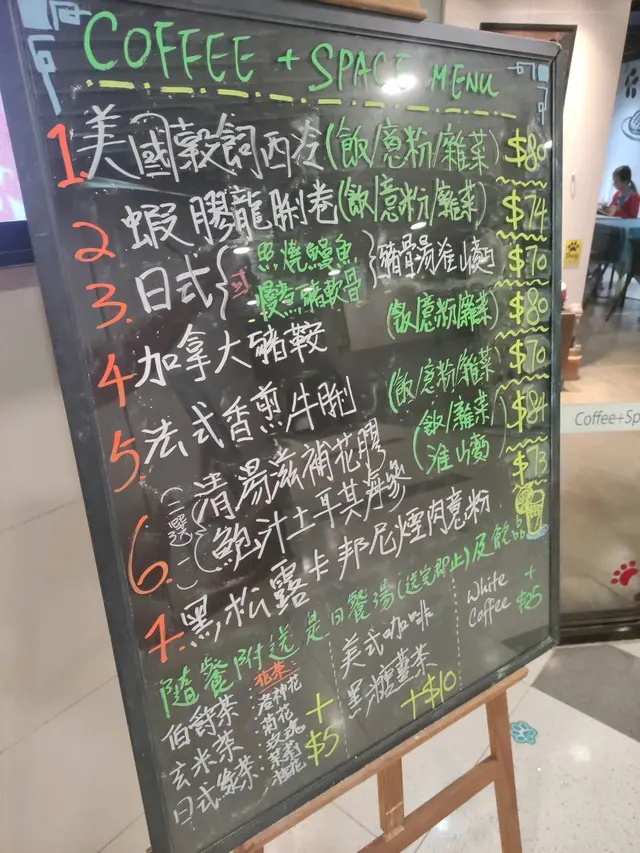 COFFEE + SPACE MENU
1. 美國穀飼西冷(飯/意粉/雜菜) $80
2 蝦膠龍脷卷(飯/意粉/雜菜) $74
3. 日式{照燒鰻魚 慢煮豬軟骨}豬骨湯淮山麵 $70
4 加拿大豬鞍 (飯/意粉/雜菜) $80
5. 法式香煎牛脷 (飯/意粉/雜菜) $70
6. (二選一) 清湯滋補花膠 (飯/雜菜 $84
鮑汁土耳其海參 淮山麵)
7. 黑松露卡邦尼煙肉意粉 $73
隨餐附送是日餐湯(送完即止)及飲品
伯爵茶
玄米茶
日式綠茶
花茶:
洛神花
菊花
玫瑰
茉莉
桂花
+
$5
美式咖啡
黑糖薑茶
+$10
White
Coffee
+
$25
Coffee+Sp